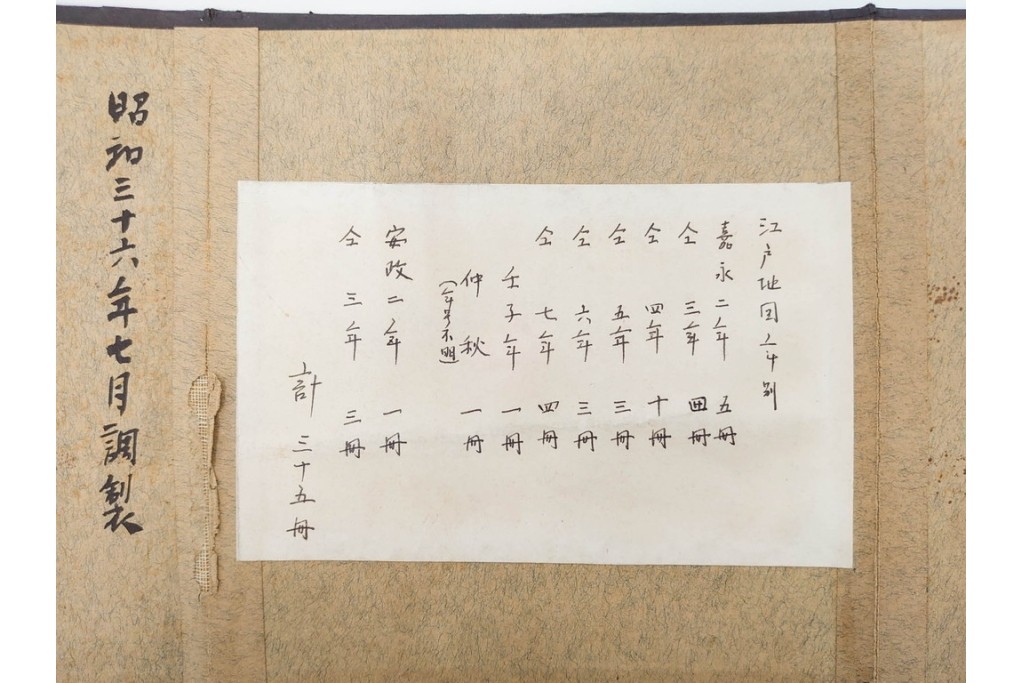 江戸地図年別
嘉永二年 五冊
仝 三年 四冊
仝 四年 十冊
仝 五年 三冊
仝 六年 三冊
仝 七年 四冊
壬子年 一冊
仲秋 一冊
(年号不明)
安政二年 一冊
仝 三年 三冊
計 三十五冊
昭和三十六年七月調製